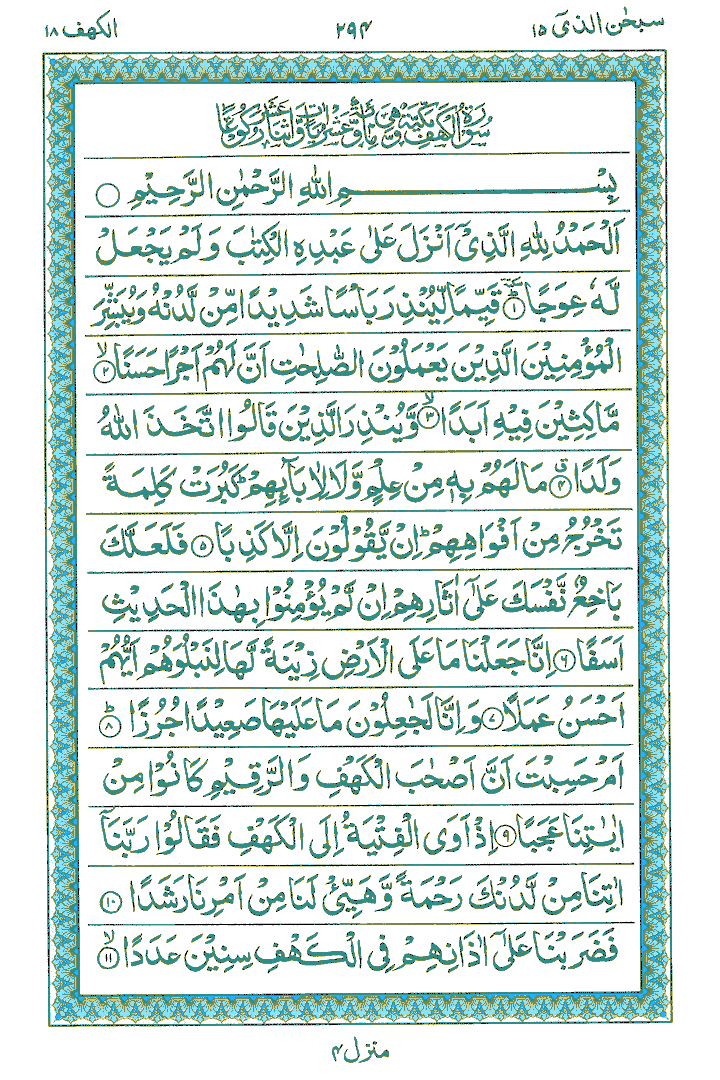 سبحٰن الذیٓ ١٥
٢٩٤
الكهف ١٨
سُوْرَةُ الْكَهْفِ مَكِّيَّةٌ وَّهِيَ مِائَةٌ وَّعَشْرُ اٰيَاتٍ وَّاثْنَا عَشَرَ رُكُوْعًا
بِسْمِ اللّٰهِ الرَّحْمٰنِ الرَّحِيْمِ ○
اَلْحَمْدُ لِلّٰهِ الَّذِيْٓ اَنْزَلَ عَلٰى عَبْدِهِ الْكِتٰبَ وَلَمْ يَجْعَلْ
لَّهٗ عِوَجًا ۜ ؕ ﴿١﴾ قَيِّمًا لِّيُنْذِرَ بَاْسًا شَدِيْدًا مِّنْ لَّدُنْهُ وَيُبَشِّرَ
الْمُؤْمِنِيْنَ الَّذِيْنَ يَعْمَلُوْنَ الصّٰلِحٰتِ اَنَّ لَهُمْ اَجْرًا حَسَنًا ۙ ﴿٢﴾
مَّاكِثِيْنَ فِيْهِ اَبَدًا ۙ ﴿٣﴾ وَّيُنْذِرَ الَّذِيْنَ قَالُوا اتَّخَذَ اللّٰهُ
وَلَدًا ۗ ﴿٤﴾ مَا لَهُمْ بِهٖ مِنْ عِلْمٍ وَّلَا لِاٰبَآئِهِمْ ؕ كَبُرَتْ كَلِمَةً
تَخْرُجُ مِنْ اَفْوَاهِهِمْ ؕ اِنْ يَّقُوْلُوْنَ اِلَّا كَذِبًا ﴿٥﴾ فَلَعَلَّكَ
بَاخِعٌ نَّفْسَكَ عَلٰٓى اٰثَارِهِمْ اِنْ لَّمْ يُؤْمِنُوْا بِهٰذَا الْحَدِيْثِ
اَسَفًا ﴿٦﴾ اِنَّا جَعَلْنَا مَا عَلَى الْاَرْضِ زِيْنَةً لَّهَا لِنَبْلُوَهُمْ اَيُّهُمْ
اَحْسَنُ عَمَلًا ﴿٧﴾ وَاِنَّا لَجٰعِلُوْنَ مَا عَلَيْهَا صَعِيْدًا جُرُزًا ؕ ﴿٨﴾
اَمْ حَسِبْتَ اَنَّ اَصْحٰبَ الْكَهْفِ وَالرَّقِيْمِ كَانُوْا مِنْ
اٰيٰتِنَا عَجَبًا ﴿٩﴾ اِذْ اَوَى الْفِتْيَةُ اِلَى الْكَهْفِ فَقَالُوْا رَبَّنَآ
اٰتِنَا مِنْ لَّدُنْكَ رَحْمَةً وَّهَيِّئْ لَنَا مِنْ اَمْرِنَا رَشَدًا ﴿١٠﴾
فَضَرَبْنَا عَلٰٓى اٰذَانِهِمْ فِي الْكَهْفِ سِنِيْنَ عَدَدًا ۙ ﴿١١﴾
منزل ٤